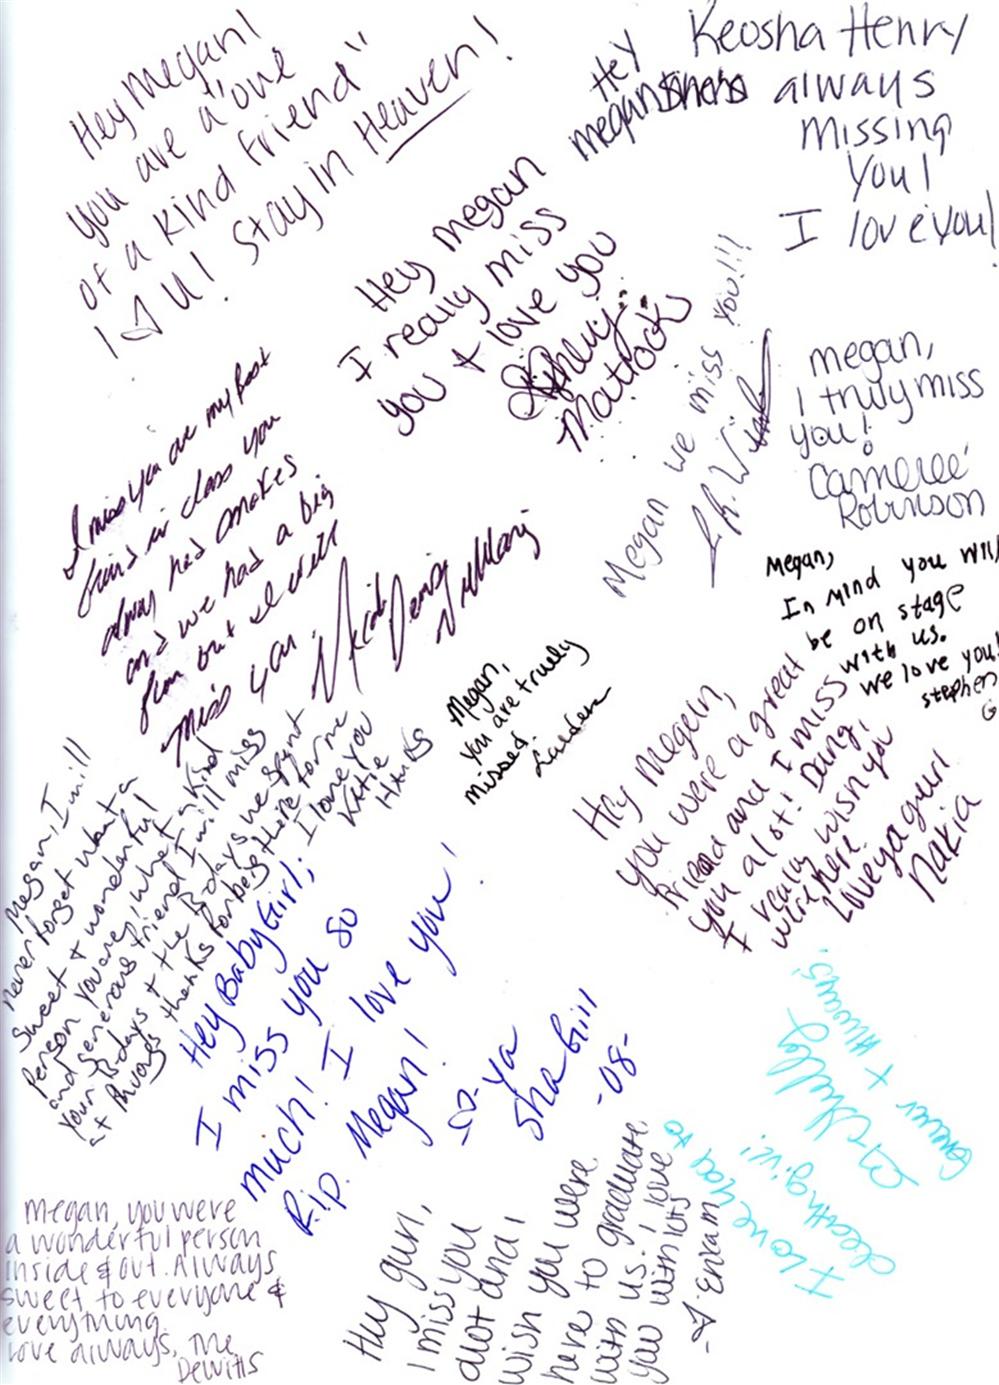 Hey Megan!
you are a "one
of a kind friend"
I ♡ U! Stay in Heaven!
Hey
megan
Keosha Henry
always
Missing
You!
I love you!
Hey megan
I really miss
you & love you
Ashley
Matlock
Megan we miss you!!!
megan,
I truly miss
you!
Cameree
Robinson
I miss you are my best
friend in class you
always had
and we had a big
fun but I will
Miss you.
Megan,
In Mind you will
be on stage
with us.
we love you!
stephen
G
Megan,
you are truely
missed.
Hey Megan,
you were a great
friend and I miss
you alot! Dang,
I really wish you
were here.
Love ya gurl
Nakia
Megan, I will
never forget what a
sweet & wonderful
person you are, what a kind
and generous friend I will miss
your B-days & the B-days we spent
at Thanks for being there for me
I love you
Katie
Hanks
Hey BabyGirl,
I miss you so
much! I love you!
R.i.p. Megan!
♡- Ya
Sha Gill
-08-
I love you to
death girl!
Shelby
forever & Always!
Megan, you were
a wonderful person
inside & out. Always
sweet to everyone &
everything.
love always, The
Dewitts
Hey gurl,
I miss you
alot and I
wish you were
here to graduate
with us. I love
you with lots
-♡ Enxam